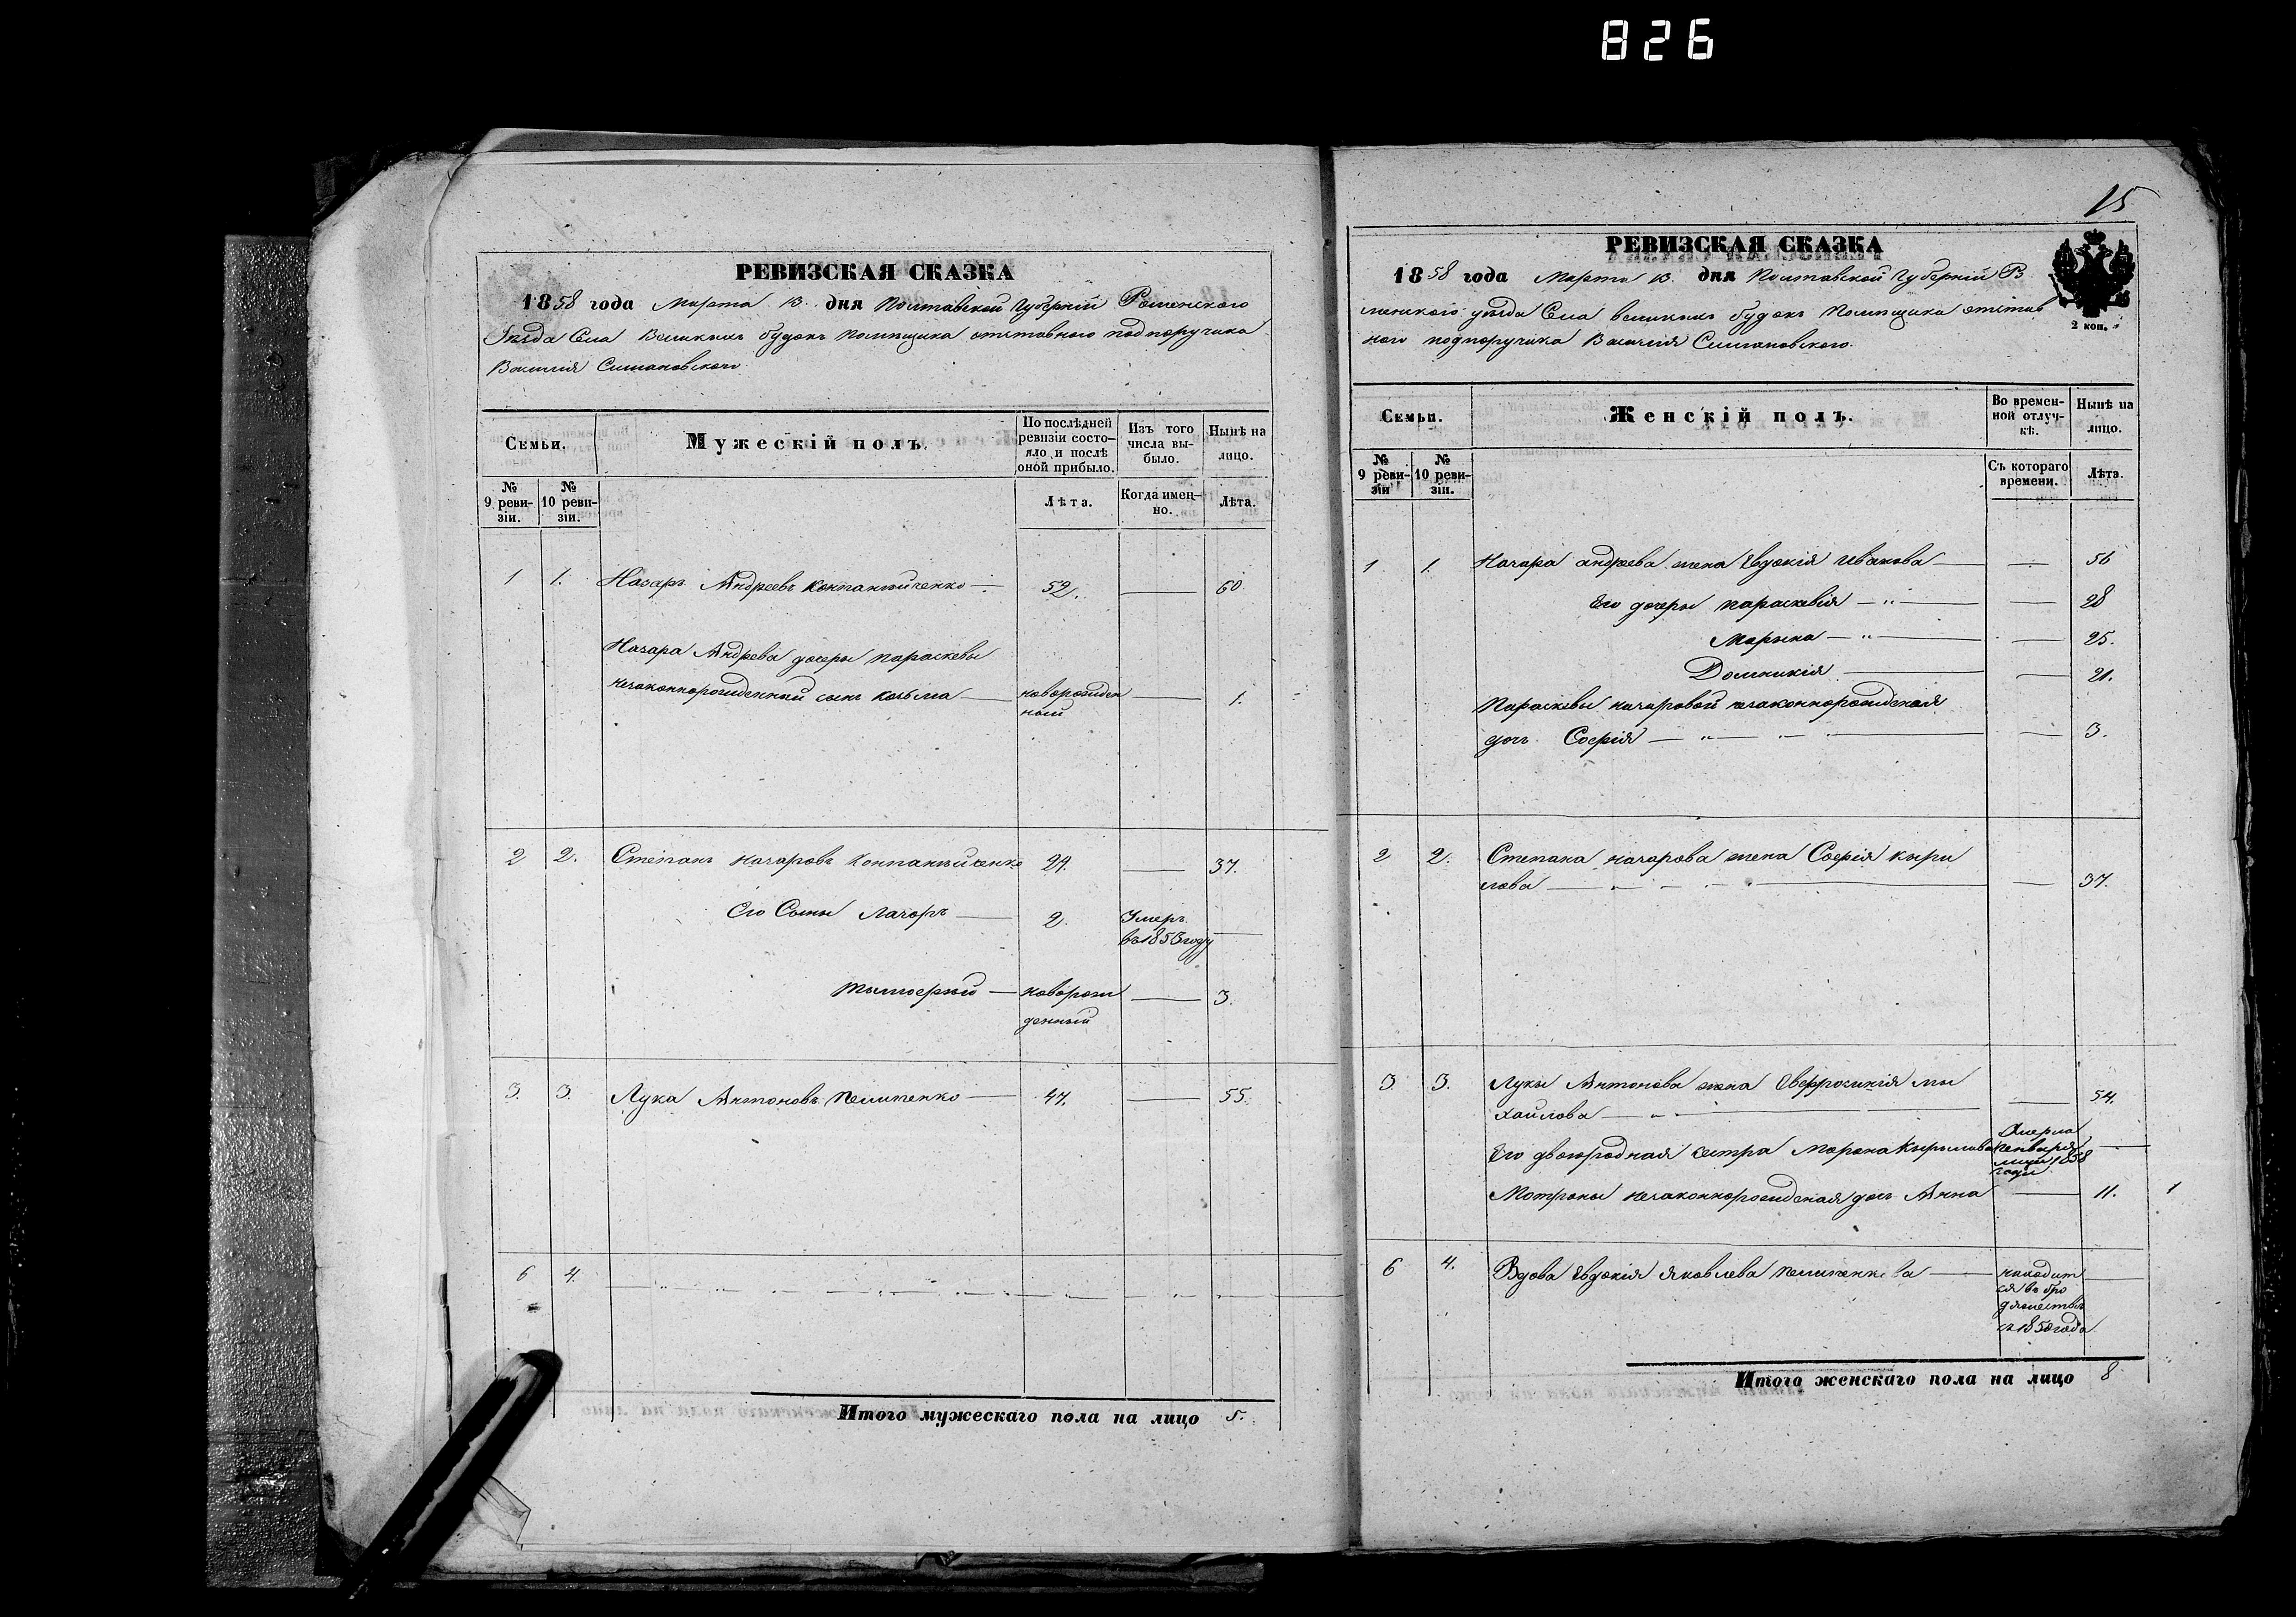 826
РЕВИЗСКАЯ СКАЗКА
1858 года Марта 13. дня Полтавской Губерній Роменского
Уезда Села Великихъ будокъ Помѣщика отставного подпоручика
Василія Симановского
Семьи.
Мужескій полъ.
По послѣдней ревизіи состояло и послѣ оной прибыло.
Изъ того числа выбыло.
Нынѣ на лицо.
№ 9 ревизіи.
№ 10 ревизіи.
Лѣта.
Когда именно.
Лѣта.
1 1. Назаръ Андреевъ Компаныйченко 52. — 60.
Назара Андрева дочеры параскевы
незаконнорожденный сынъ козьма — новорожден — 1.
ный
2 2. Степанъ назаровъ Компанъйченко 29. — 37.
Его Сыны Лазоръ — 2. Умеръ
въ 1853 году —
тымоерый — новорож — 3.
денный
3. 3. Лука Антоновъ Пелипенко — 47. — 55.
6 4.
Итого мужескаго пола на лицо 5.
15
РЕВИЗСКАЯ СКАЗКА
1858 года Марта 13. дня Полтавской Губерній Р
менского уѣзда Села великихъ будокъ Помѣщика отстав
ного подпоручика Василія Симановского.
2 коп.
Семьи.
Женскій полъ.
Во временной отлучкѣ.
Нынѣ на лицо.
№ 9 ревизіи
№ 10 ревизіи.
Съ котораго времени.
Лѣта.
1 1. Назара андрева жена Явдокія Ивакова — — 56
Его дочеры параскевія — " — — 28
Марына — " — — 25.
Домникія — — 21.
Параскевы назаровой незаконнорожденая
дочь Софія — " — — 3.
2 2. Степана назарова жена Софія кыри
лова — — 37.
3 3. Лукы Антонова жена Евфросинія мы
хайлова — — 54.
Его двоюродная сестра Мотрона Кырылова Умерла
генваря
1858
года —
Мотроны незаконнорожденая дочь Анна — 11. 1
6 4. Вдова Явдокія Яковлева Пелипенкова — находит
ся въ бро
дяжествѣ
съ 1850 года
Итого женскаго пола на лицо 8